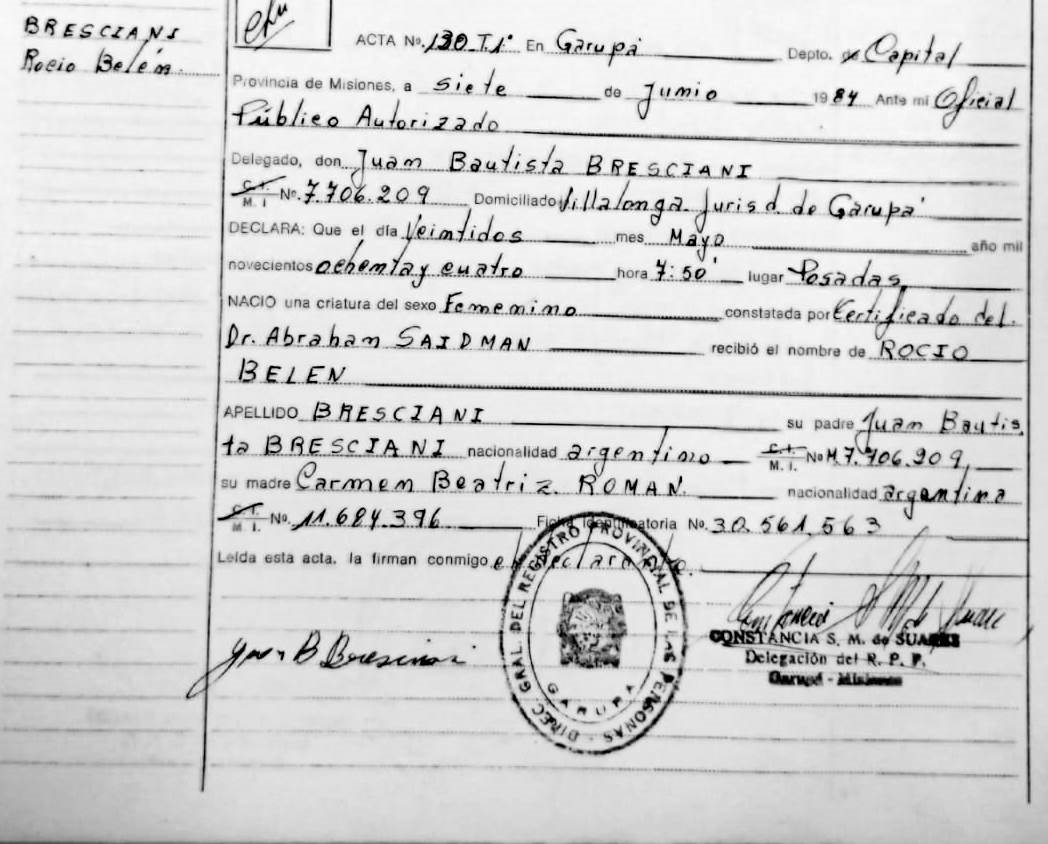 BRESCIANI
Rocio Belén.
ACTA No. 130 T.1° En Garupá Depto. de Capital
Provincia de Misiones, a siete de Junio 1984 Ante mi Oficial
Público Autorizado
Delegado, don Juan Bautista BRESCIANI
C.I. M. I No. 7.706.209 Domiciliado Villalonga Jurisd. de Garupá
DECLARA: Que el día Veintidos mes Mayo año mil
novecientos ochenta y cuatro hora 7:50' lugar Posadas,
NACIO una criatura del sexo Femenino constatada por Certificado del.
Dr. Abraham SAIDMAN recibió el nombre de ROCIO
BELEN
APELLIDO BRESCIANI su padre Juan Bautis
ta BRESCIANI nacionalidad argentino C.I. M. I. No M.7.706.209,
su madre Carmen Beatriz ROMAN. nacionalidad argentina
C.I. M. I. No. 11.684.396 Ficha identificatoria No. 30.561.563
Leída esta acta. la firman conmigo el declarante.
CONSTANCIA S. M. de SUAREZ
Delegación del R. P. P.
Garupá - Misiones
DIREC GRAL. DEL REGISTRO PROVINCIAL DE LAS PERSONAS
GARUPA